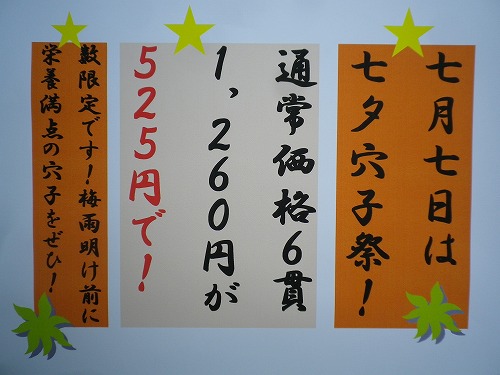 七月七日は
七夕穴子祭！
通常価格6貫
1,260円が
525円で！
数限定です！梅雨明け前に
栄養満点の穴子をぜひ！